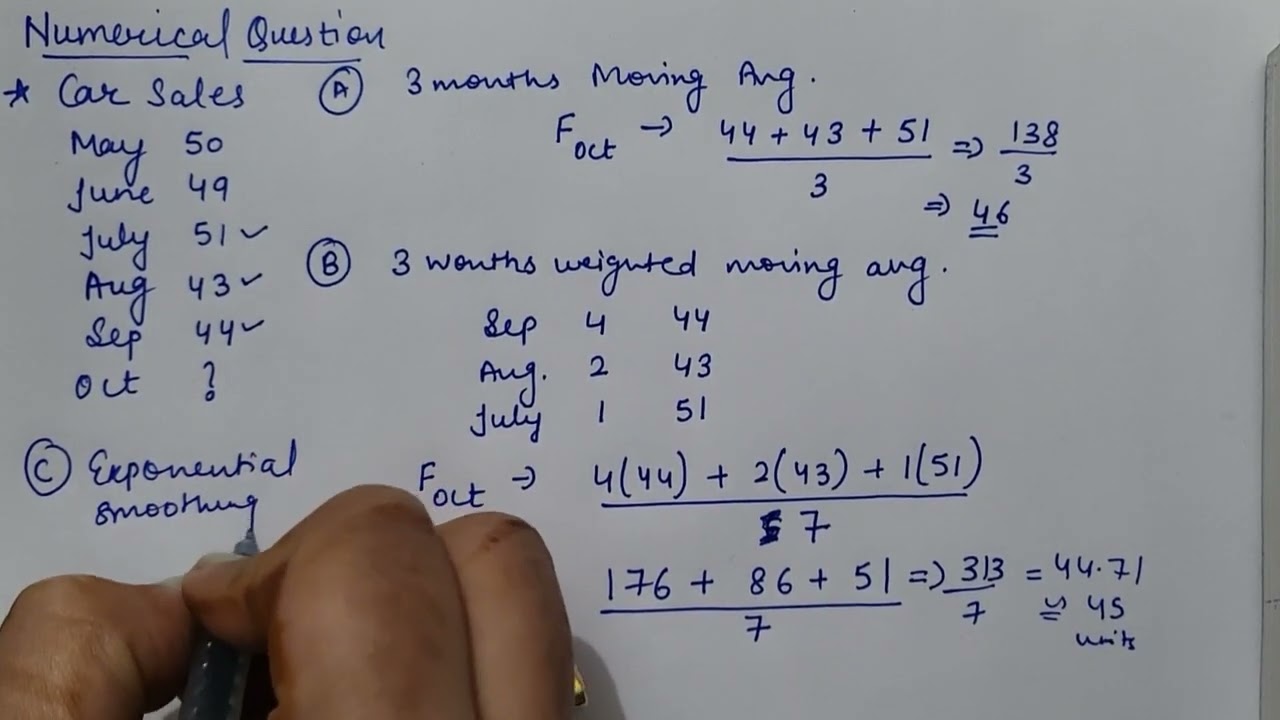 Numerical Question
* Car Sales
May 50
June 49
July 51 ✓
Aug 43 ✓
Sep 44 ✓
Oct ?
(A) 3 months Moving Avg.
F Oct → 44 + 43 + 51 / 3 ⇒ 138 / 3
⇒ 46
(B) 3 months weighted moving avg.
Sep 4 44
Aug. 2 43
July 1 51
F Oct → 4(44) + 2(43) + 1(51) / 7
176 + 86 + 51 / 7 ⇒ 313 / 7 = 44.71
≃ 45
units
(C) Exponential
smoothing